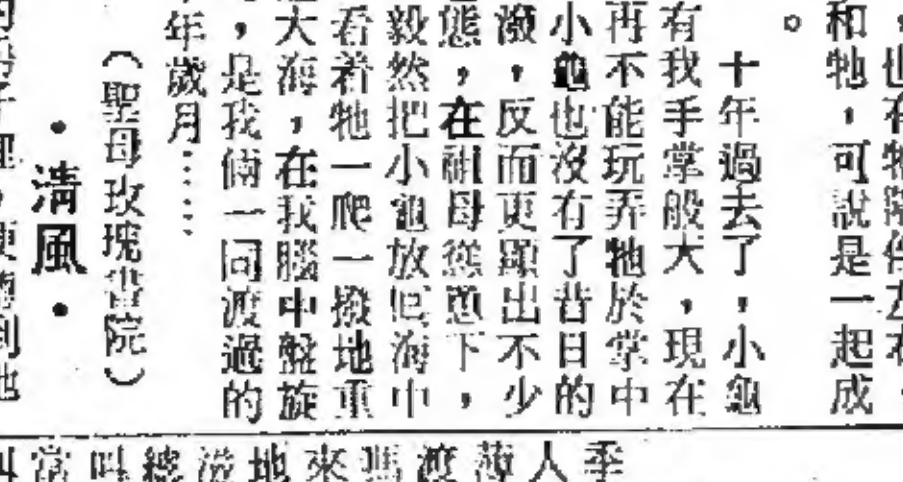 ，也有牠陪伴左右，
和牠，可說是一起成
。
十年過去了，小龜
有我手掌般大，現在
再不能玩弄牠於掌中
小龜也沒有了昔日的
潑，反而更顯出不少
態，在祖母慫恿下，
毅然把小龜放回海中
看着牠一爬一撥地重
大海，在我腦中盤旋
，是我倆一同渡過的
年歲月……
（聖母玫瑰書院）
•清風•
季
人
薄
渡
嗎
來
地
滋
總
叫
當